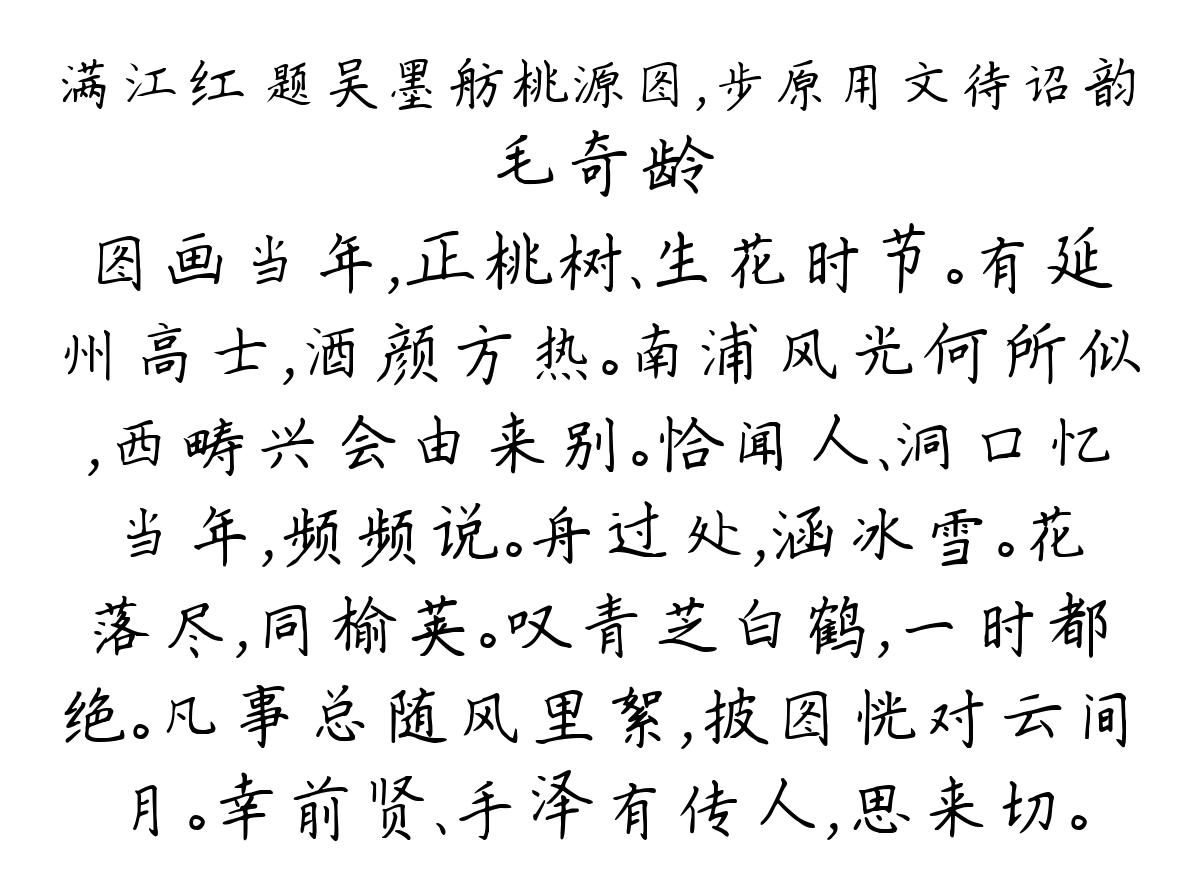 满江红 题吴墨舫桃源图,步原用文待诏韵
毛奇龄
图画当年,正桃树、生花时节。有延
州高士,酒颜方热。南浦风光何所似
,西畴兴会由来别。恰闻人、洞口忆
当年,频频说。舟过处,涵冰雪。花
落尽,同榆荚。叹青芝白鹤,一时都
绝。凡事总随风里絮,披图恍对云间
月。幸前贤、手泽有传人,思来切。